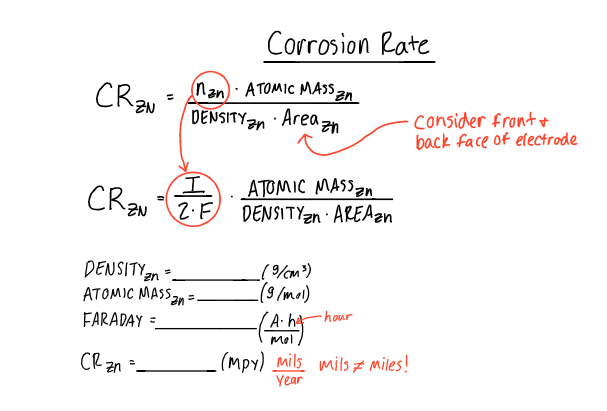 Corrosion Rate
CR_ZN = n_zn · ATOMIC MASS_zn / DENSITY_zn · Area_zn
Consider front +
back face of electrode
CR_ZN = I / 2·F · ATOMIC MASS_zn / DENSITY_zn · AREA_zn
DENSITY_zn = ________ (g/cm³)
ATOMIC MASS_zn = ________ (g/mol)
FARADAY = ________ (A·h / mol) hour
CR_zn = ________ (mpy) mils / year mils ≠ miles!